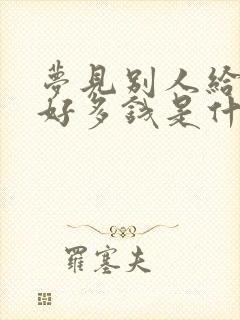 夢見別人給
好多錢是什
羅塞夫